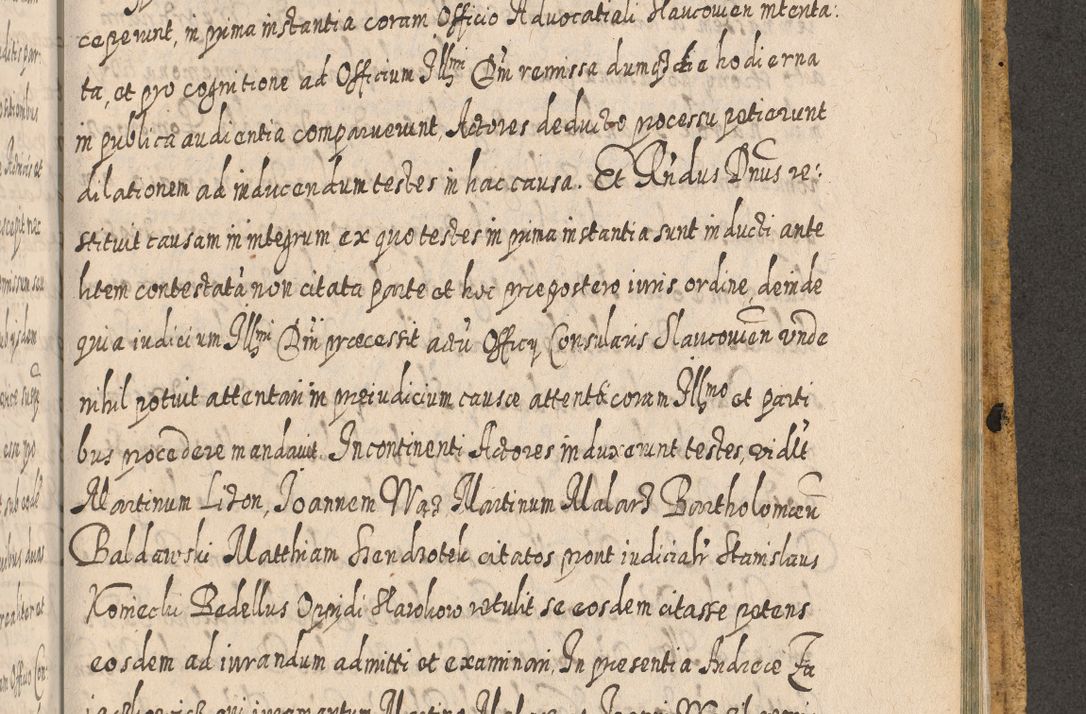 ceperunt, in prima instantia coram Officio Advocatiali Slaucouien intenta:
ta, et pro cognitione ad Officium Illmi Dni remissa dumqz de hodierna
in publica audientia comparuerunt Actores deducto processu petierunt
dilationem ad inducendum testes in hac causa. Et Rndus Dnus re:
stituit causam in integrum ex quo testes in prima instantia sunt inducti ante
litem contestata non citata parte et hoc præpostero iuris ordine, deinde
quia iudicium Illmi Dni præcessit actu Officy Consularis Slaucouien unde
nihil potuit attentari in preiudicium causæ attent coram Illmo et parti
bus procedere mandauit. Incontinenti Actores induxerunt testes, vidlt
Martinum Lizon, Joannem Wąs Martinum Malarz Bartholomæu
Baldowski Matthiam Szendzotek citatos pront iudicialr Stanislaus
Konieclu Bedellus Oppidi Slawkow retulit se eosdem citasse petens
eosdem ad iurandum admitti et examinari, In presentia Andreæ Za